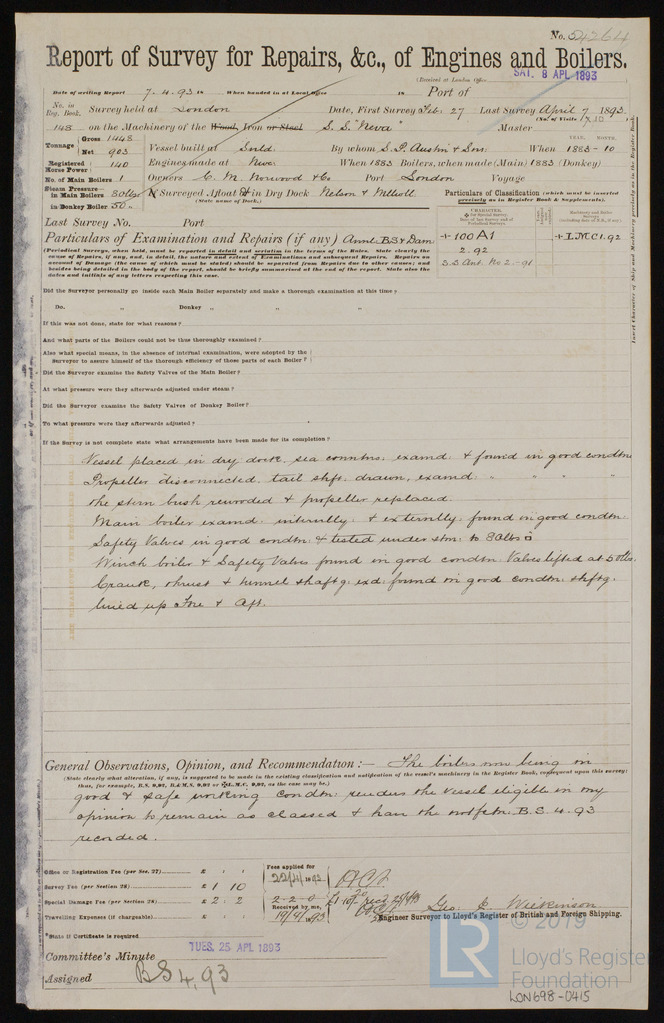 No. 54264
Report of Survey for Repairs, &c., of Engines and Boilers.
(Received at London Office SAT. 8 APL 1893
Date of writing Report 7.4.93 When handed in at Local Office Port of
No. in Reg. Book. Survey held at London Date, First Survey Feb: 27 Last Survey April 7 1893
(No. of Visits
143 on the Machinery of the Wood, Iron or Steel S.S. "Neva" Master
Tonnage Gross 1448 Net 903 Vessel built at Sorld. By whom S. P. Austin & Son: When YEAR. MONTH. 1883-10
Registered Horse Power 140 Engines made at Nwc. When 1883 Boilers, when made (Main) 1883 (Donkey)
No. of Main Boilers 1 Owners C. M. Norwood & Co Port London Voyage
Steam Pressure— in Main Boilers 80lbs in Donkey Boiler 50 " If Surveyed Afloat or in Dry Dock Nelson &
(State name of Dock.)
Particulars of Classification (which must be inserted precisely as in Register Book & Supplements).
Last Survey No. Port
CHARACTER. Machinery and Boiler Survey
+100A1 +LMC1.92
2.92
S.S Ant. No 2-91
Particulars of Examination and Repairs (if any) Annl. B.S & Dam
(Periodical Surveys, when held, must be reported in detail and seriatim in the terms of the Rules. State clearly the
cause of Repairs, if any, and, in detail, the nature and extent of Examinations and subsequent Repairs. Repairs on
account of Damage (the cause of which must be stated) should be separated from Repairs due to other causes; and
besides being detailed in the body of the report, should be briefly summarised at the end of the report. State also the
dates and initials of any letters respecting this case.
Insert Character of Ship and Machinery precisely as in the Register Book.
Did the Surveyor personally go inside each Main Boiler separately and make a thorough examination at this time?
Do. " Donkey " " "
If this was not done, state for what reasons?
And what parts of the Boilers could not be thus thoroughly examined?
Also what special means, in the absence of internal examination, were adopted by the
Surveyor to assure himself of the thorough efficiency of those parts of each Boiler?
Did the Surveyor examine the Safety Valves of the Main Boiler?
At what pressure were they afterwards adjusted under steam?
Did the Surveyor examine the Safety Valves of Donkey Boiler?
To what pressure were they afterwards adjusted?
If the Survey is not complete state what arrangements have been made for its completion?
Vessel placed in dry dock, sea conntns: examd: & found in good condtn
Propeller disconnected, tail shft: drawn, examd: " " "
the stern bush rewooded & propeller replaced.
Main boiler examd: internlly: & externlly: found in good condtn:
Safety Valves in good condtn: & tested under stm: to 80lbs
Winch boiler & Safety Valves found in good condtn: Valves lifted at 50lbs.
Crank, thrust & tunnel shaftg: exd: found in good condtn: shftg:
lined up Fore & Aft.
General Observations, Opinion, and Recommendation:— The boilers now being in
(State clearly what alteration, if any, is suggested to be made in the existing classification and notification of the vessel's machinery in the Register Book, consequent upon this survey)
thus, for example, B.S. 9,92, B.&M.S. 9,92 or +L.M.C. 9,92, as the case may be.)
good & safe working condtn: renders the vessel eligible in my
opinion to remain as classed & have the notfctn: B.S. 4.93
recorded.
Office or Registration Fee (per Sec. 27)... £ : : Fees applied for
Survey Fee (per Section 28)... £ 1 : 10 22/4/1893
Special Damage Fee (per Section 28)... £ 2 : 2 2-2-0
Received by me,
Travelling Expenses (if chargeable)... £ : : 19/9/93
Geo: E. Wilkinson
Engineer Surveyor to Lloyd's Register of British and Foreign Shipping.
*State if Certificate is required
TUES. 25 APL 1893
Committee's Minute
Assigned BS 4,93
© 2019
LR
Lloyd's Register
Foundation
LON698-0415